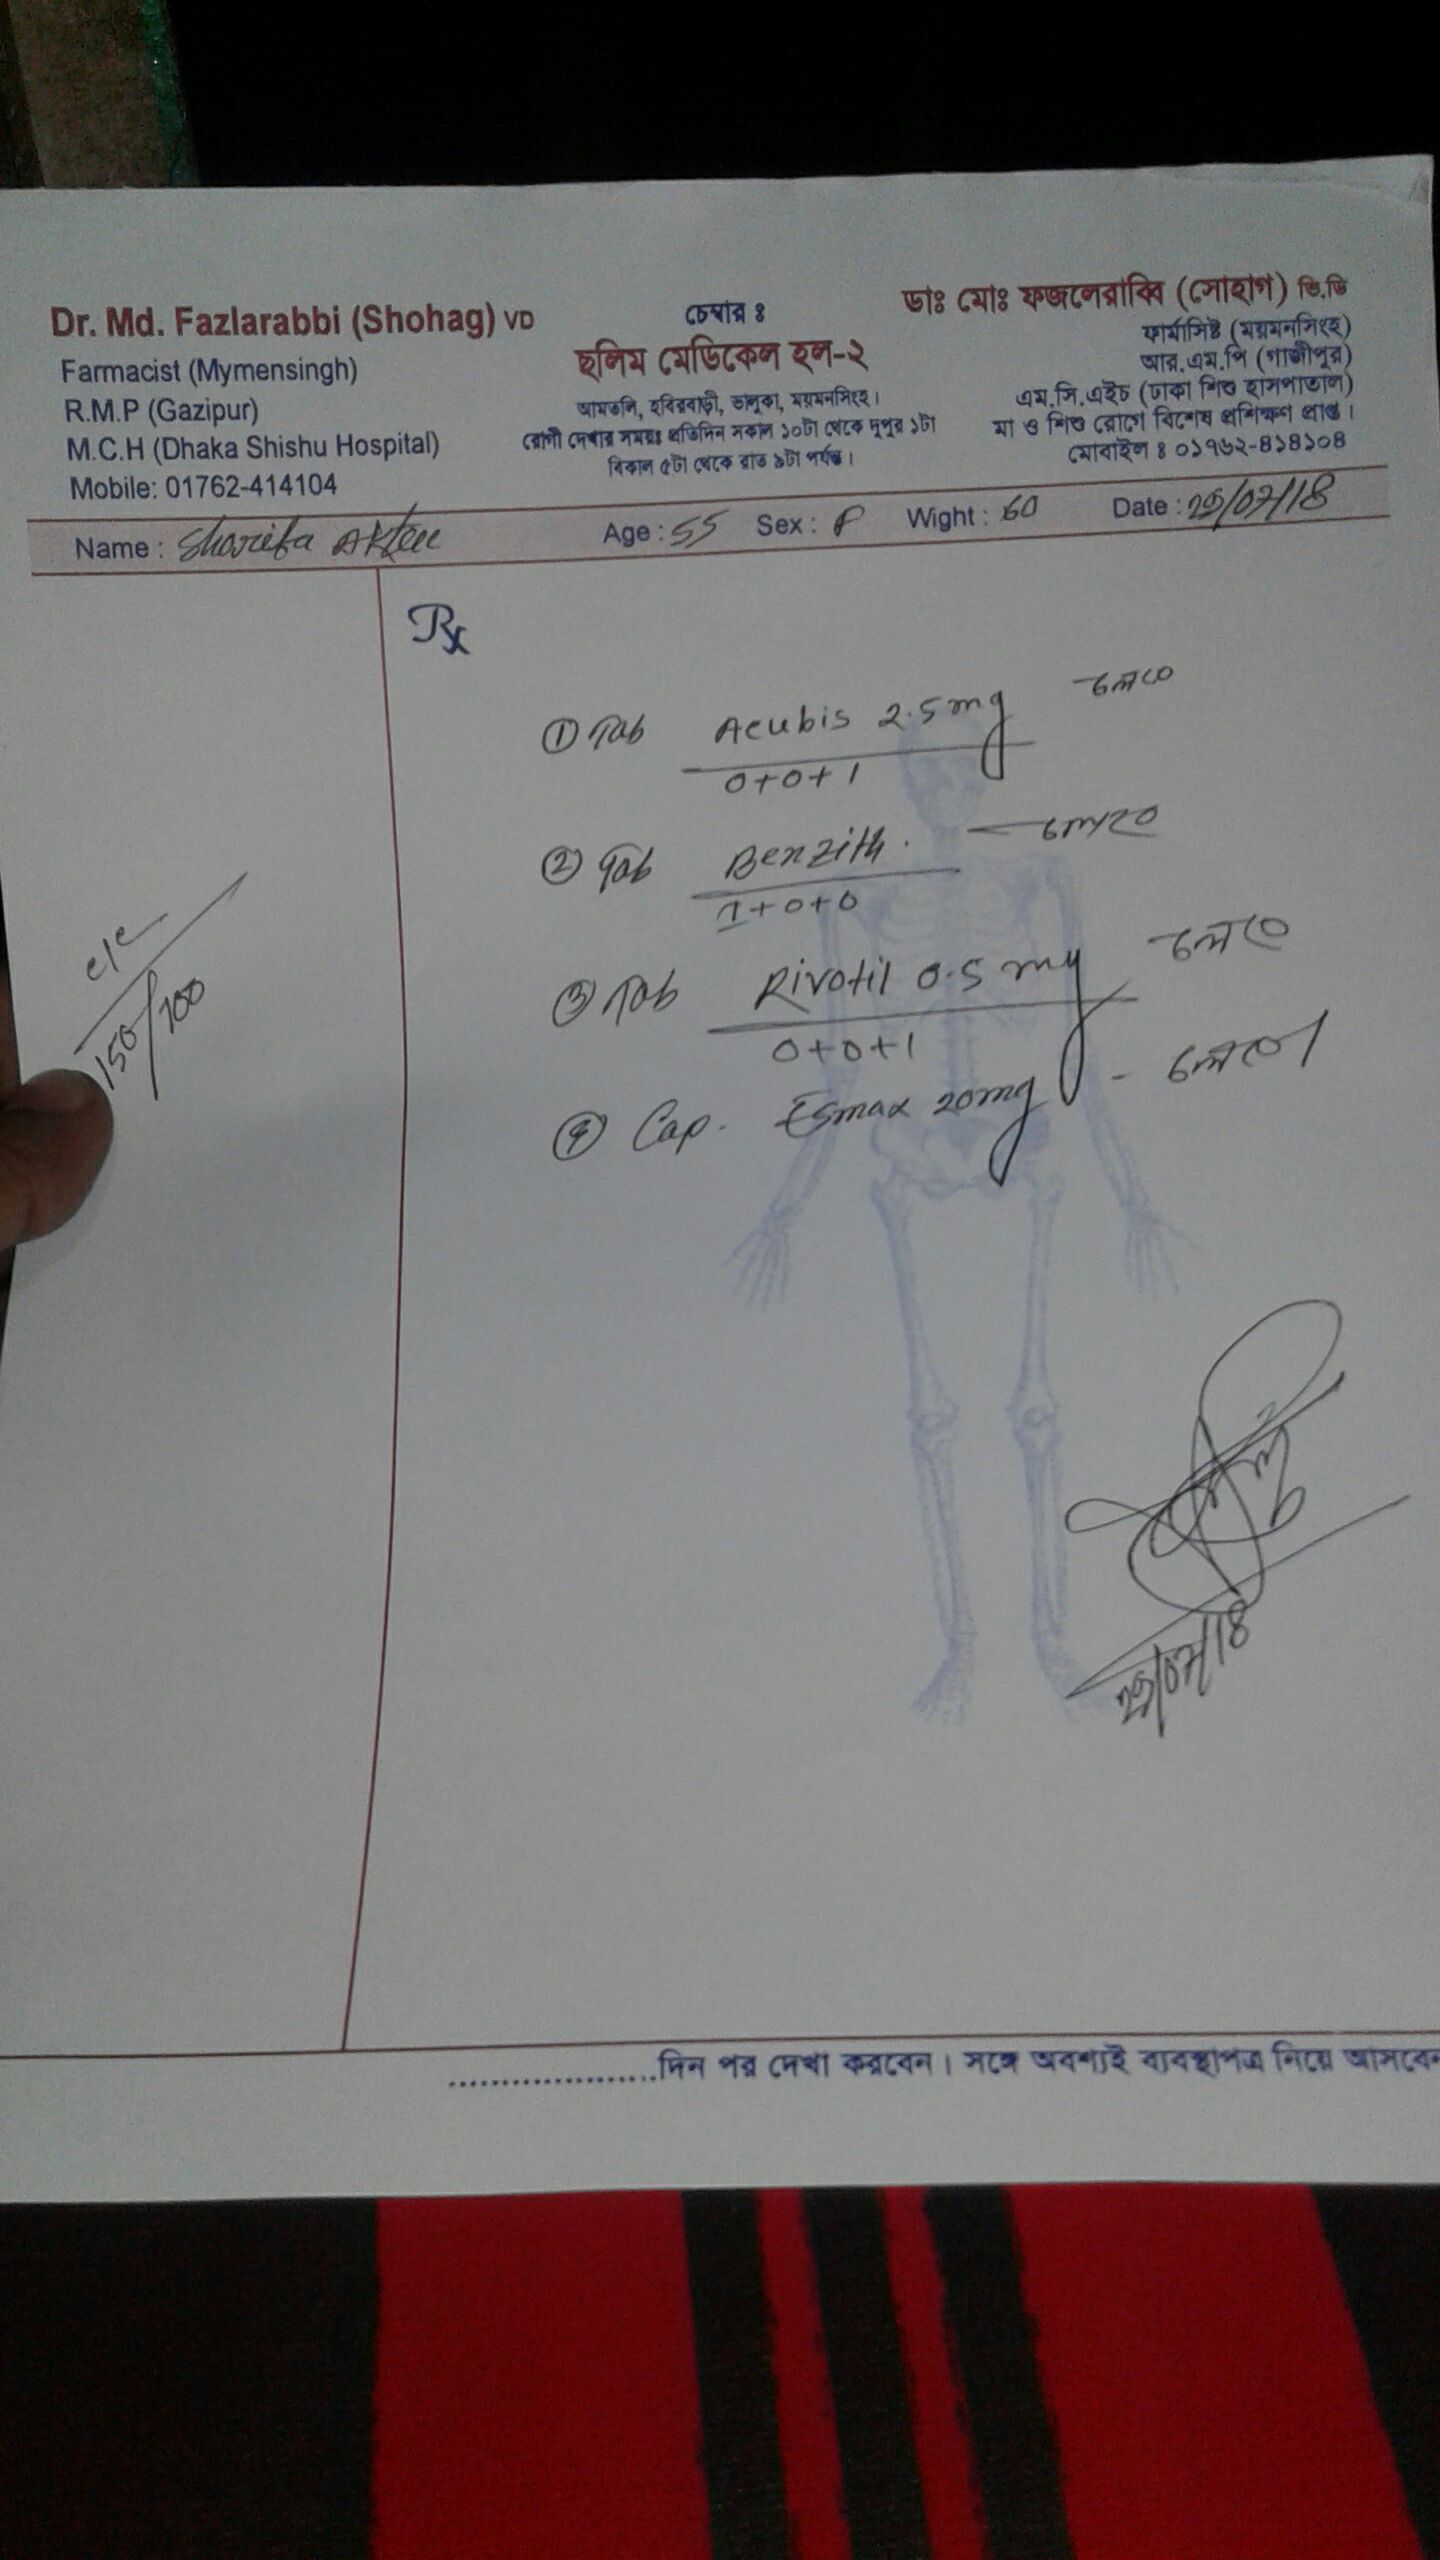 Dr. Md. Fazlarabbi (Shohag) VD
Farmacist (Mymensingh)
R.M.P (Gazipur)
M.C.H (Dhaka Shishu Hospital)
Mobile: 01762-414104
চেম্বার ঃ
ছলিম মেডিকেল হল-২
আমতলি, হবিরবাড়ী, ভালুকা, ময়মনসিংহ।
রোগী দেখার সময়ঃ প্রতিদিন সকাল ১০টা থেকে দুপুর ১টা
বিকাল ৫টা থেকে রাত ৯টা পর্যন্ত।
ডাঃ মোঃ ফজলেরাব্বি (সোহাগ) ভি.ডি
ফার্মাসিষ্ট (ময়মনসিংহ)
আর.এম.পি (গাজীপুর)
এম.সি.এইচ (ঢাকা শিশু হাসপাতাল)
মা ও শিশু রোগে বিশেষ প্রশিক্ষণ প্রাপ্ত।
মোবাইল ঃ ০১৭৬২-৪১৪১০৪
Name : Sharifa Akter Age : 55 Sex : F Wight : 60 Date : 25/07/18
Rx
① Tab Acubis 2.5 mg চলবে
0+0+1
② Tab Benzith.
1+0+0
③ Tab Rivotil 0.5 mg চলবে
0+0+1
④ Cap. Esmax 20mg - চলবে।
c/c
150/100
দিন পর দেখা করবেন। সঙ্গে অবশ্যই ব্যবস্থাপত্র নিয়ে আসবেন